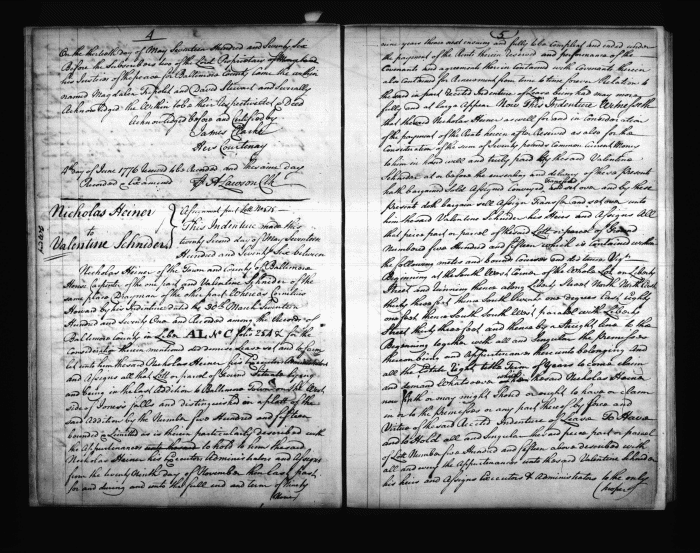 4
On the thirtieth day of May Seventeen Hundred and Seventy Six
Before the Subscribers two of the Lord Proprietors of Maryland
his Justices of the peace for Baltimore County Came the within
named Magdalen and David Stewart and Severally
Acknowledged the Within to be their Respective Act & Deed
Acknowledged before and Certified by
James
Hers Courtenay
4th day of June 1776 Received to be Recorded and the same day
Recorded & Examined A Lawson Clk
Nicholas Heiner
to
Valentine Schnider
Assignment part Lott No 515
This Indenture made this
twenty Second day of May Seventeen
Hundred and Seventy Six between
Nicholas Heiner of the Town and County of Baltimore
House Carpenter of the one part and Valentine Schnider of the
same place Drayman of the other part Whereas Cornelius
Howard by his Indenture dated the 30th March Seventeen
Hundred and Seventy and Recorded among the Records of
Baltimore County in Liber AL No C folio 258 & for the
Consideration therein mentioned did demise Lease and to farm
let unto him the said Nicholas Heiner his Executors Administrators
and Assigns all that Lott or parcel of Ground Situate lying
and being in the last Addition to Baltimore Town on the West
side of Jones's falls and distinguished in a platt of the
said Addition by the Number five Hundred and fifteen
bounded & limitted as is therein particularly described with
the Appurtenances to hold to him the said
Nicholas Heiner his Executors Administrators and Assigns
from the twenty Ninth day of November then last past
for and during and unto the full end and term of Ninety
(Nine)
5
nine years thence next ensuing and fully to be compleat and ended under
the payment of the Rents therein Reserved and performance of the
Covenants and agreements therein Contained with Covenants therein
also contained for Renewment from time to time forever Relation to
the said in part Recited Indenture of Lease being had may more
fully and at large Appear Now This Indenture Witnesseth
that the said Nicholas Heiner as well for and in Consideration
of the payment of the Rents herein after Reserved as also for the
Consideration of the sum of Seventy pounds Common current Money
to him in hand well and truly paid by the said Valentine
Schnider at or before the ensealing and delivery of these presents
hath bargained Sold Assigned transferred and set over and by these
presents doth bargain sell Assign Transfer and set over unto
him the said Valentine Schnider his Heirs and Assigns All
that piece part or parcel of the said Lott or parcel of Ground
Numbered five Hundred and fifteen which is Contained within
the following metes and bounds Courses and distances Viz
Beginning at the South West Corner of the Whole Lot on Liberty
Street and running thence along Liberty Street North North West
thirty three feet thence South Seventy one degrees East Eighty
one feet thence South South West parralel with Liberty
Street thirty three feet and thence by a Straight line to the
Beginning together with all and Singular the premises
therein being and Appurtenances thereunto belonging And
all the Estate Right title Term of Years to come claim
and demand Whatsoever which the said Nicholas Heiner
now hath or may might Should or ought to have or claim
in or to the premises or any part thereof by force and
Virtue of the said Recited Indenture of Lease To Have
and to Hold all and Singular the said piece part or parcel
of Lot Number five Hundred and fifteen above described with
all and every the Appurtenances unto the said Valentine Schnider
his heirs and Assigns Executors & Administrators to the only
(proper)